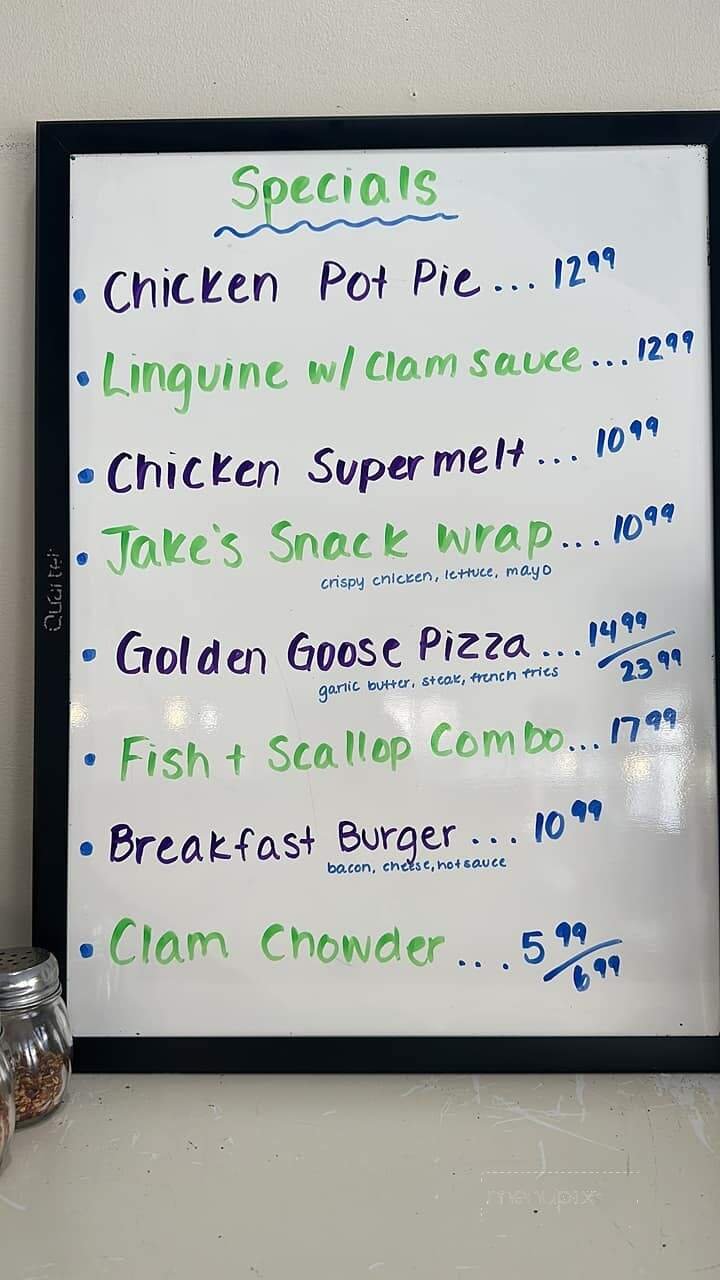 Specials
• Chicken Pot Pie... 12⁹⁹
• Linguine w/ Clam sauce... 12⁹⁹
• Chicken Supermelt... 10⁹⁹
• Jake's Snack Wrap... 10⁹⁹
crispy chicken, lettuce, mayo
• Golden Goose Pizza... 14⁹⁹/23⁹⁹
garlic butter, steak, french fries
• Fish + Scallop Combo... 17⁹⁹
• Breakfast Burger... 10⁹⁹
bacon, cheese, hot sauce
• Clam Chowder... 5⁹⁹/6⁹⁹
Quartet
menupix